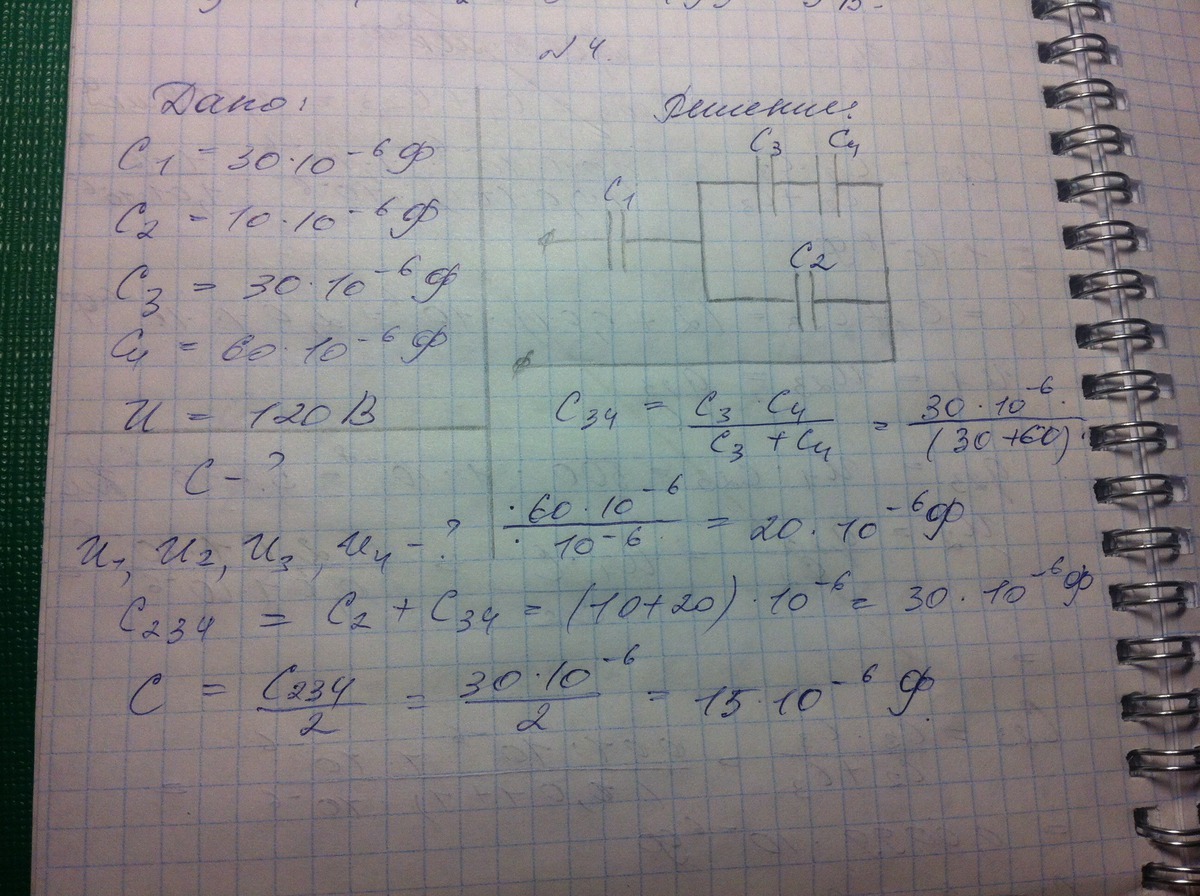 №4.
Дано:
C1 = 30·10⁻⁶ Ф
C2 = 10·10⁻⁶ Ф
C3 = 30·10⁻⁶ Ф
C4 = 60·10⁻⁶ Ф
U = 120 В
C - ?
U1, U2, U3, U4 - ?
Решение:
C3 C4
C1
C2
C34 = (C3 · C4)/(C3 + C4) = (30·10⁻⁶·)/((30+60)·
(·60·10⁻⁶)/(·10⁻⁶) = 20·10⁻⁶ Ф
C234 = C2 + C34 = (10+20)·10⁻⁶ = 30·10⁻⁶ Ф
C = C234/2 = (30·10⁻⁶)/2 = 15·10⁻⁶ Ф.